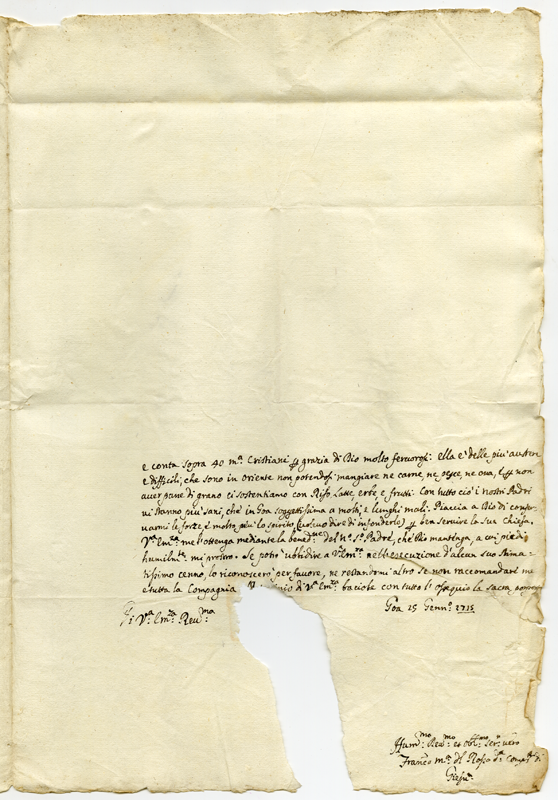 e conta sopra 40 m.ª Cristiani p grazia di Dio molto fervorosi: ella e' delle piu' austere
e difficili, che sono in oriente non potendosi mangiare ne carne, ne pesce, ne ova, e p non
aver pane di grano ci sostentiamo con Riso Latte erbe, e frutti. Con tutto cio' i nostri Padri
ui stanno piu' sani, che in Goa soggettissima a molti, e lunghi mali. Piaccia a Dio di conser-
uarmi le forze, e molto piu' lo spirito, (uo' dire di infonderlo) p ben seruire la Sua Chiesa.
V.ª Em.ª me l'ottenga mediante la bened.ne del N.º S.º Padre, che Dio mantenga, a cui piedi
humilm.te mi prostro. Se potro' ubidire a V.ª Em.za nell'esecuzione d'alcun suo stima-
tissimo cenno, lo riconoscero' per fauore, ne restandomi altro se non raccomandare me
e tutta la Compagnia di V.ª Em.za bacio le con tutto l'ossequio la sacra
Goa 25 Genn.º 1715
Di V.ra Em.za Reu.ma
Hum.mo Deu.mo et Obl.mo Ser.º uero
Franc.º M.ª del Rosso d.ª Comp.ª di
Giesu'